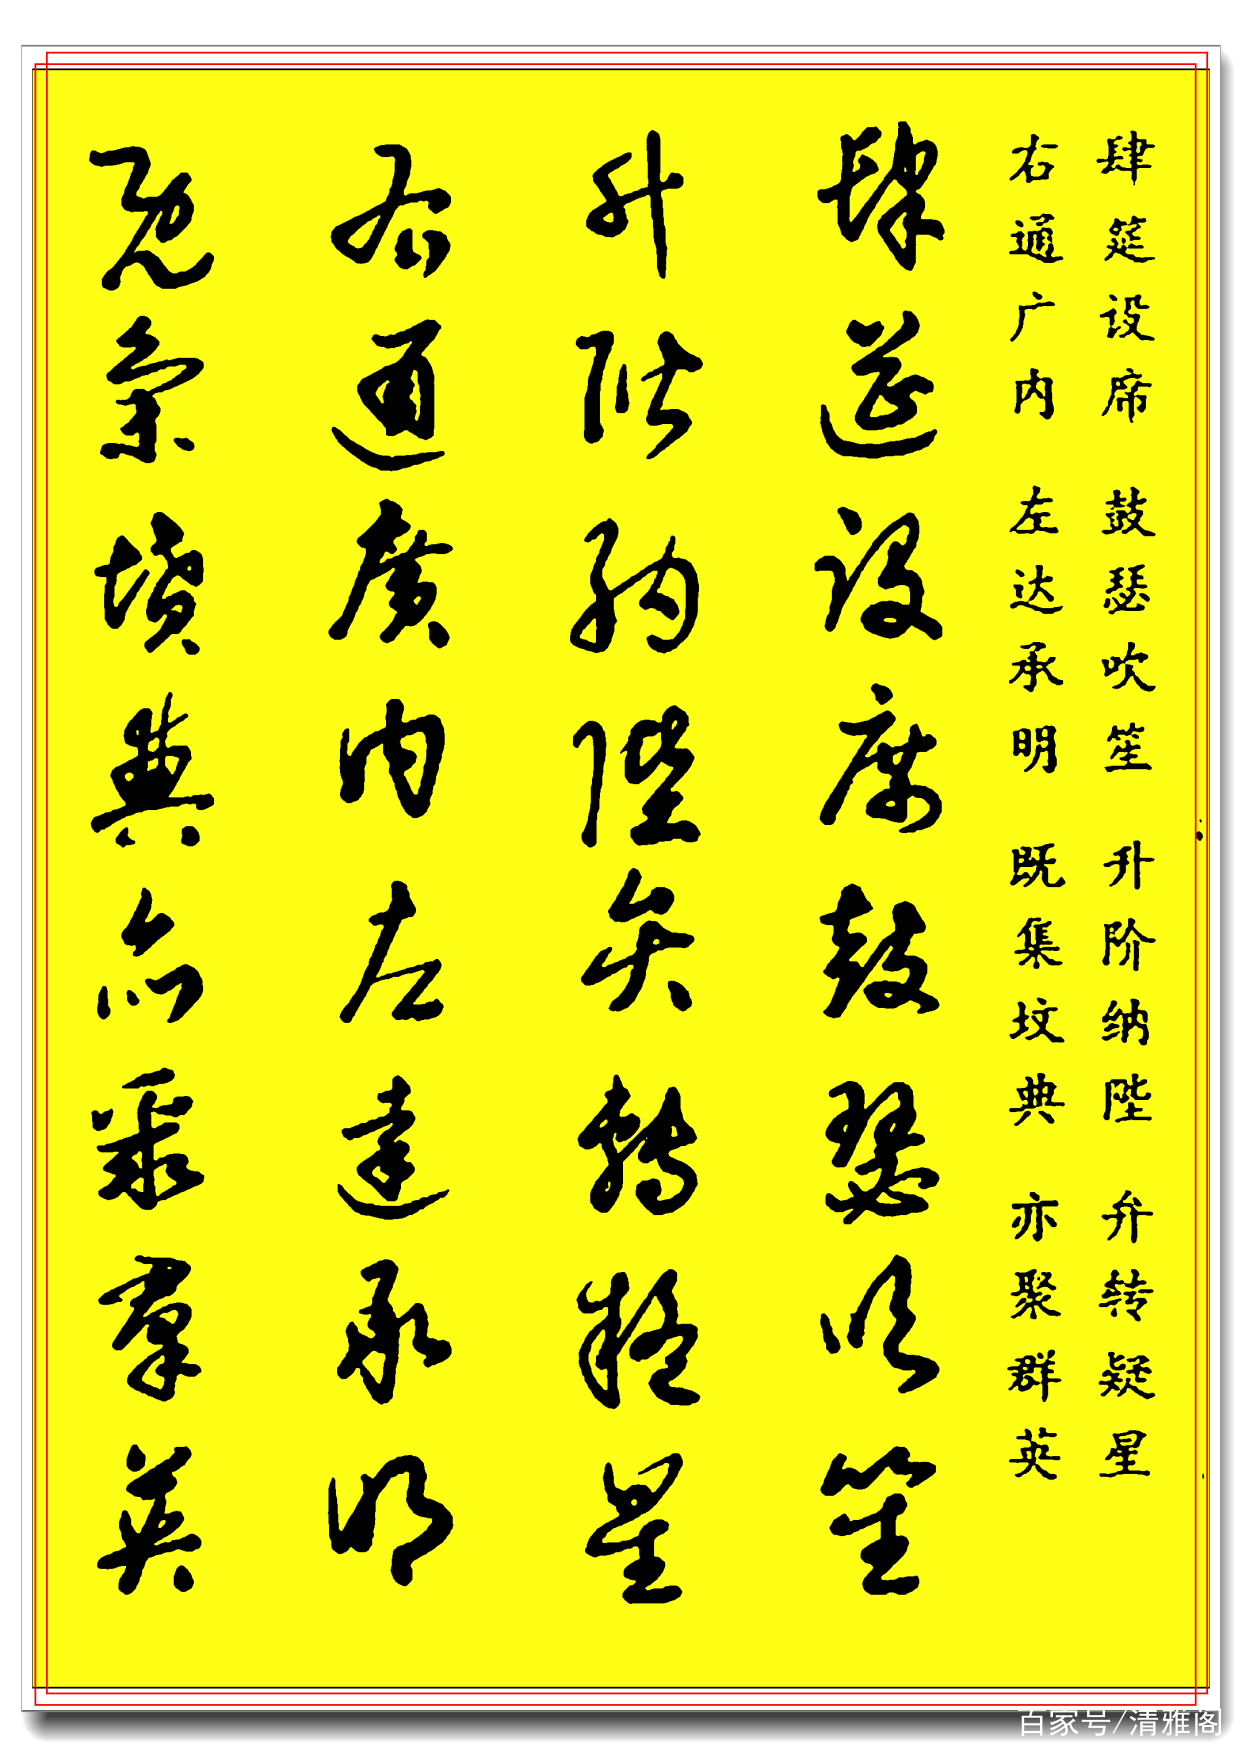 肆筵设席 鼓瑟吹笙 升阶纳陛 弁转疑星
右通广内 左达承明 既集坟典 亦聚群英
肆筵設席鼓瑟吹笙
升階納陛弁轉疑星
右通廣內左達承明
既集墳典亦聚群英
百家号/清雅阁